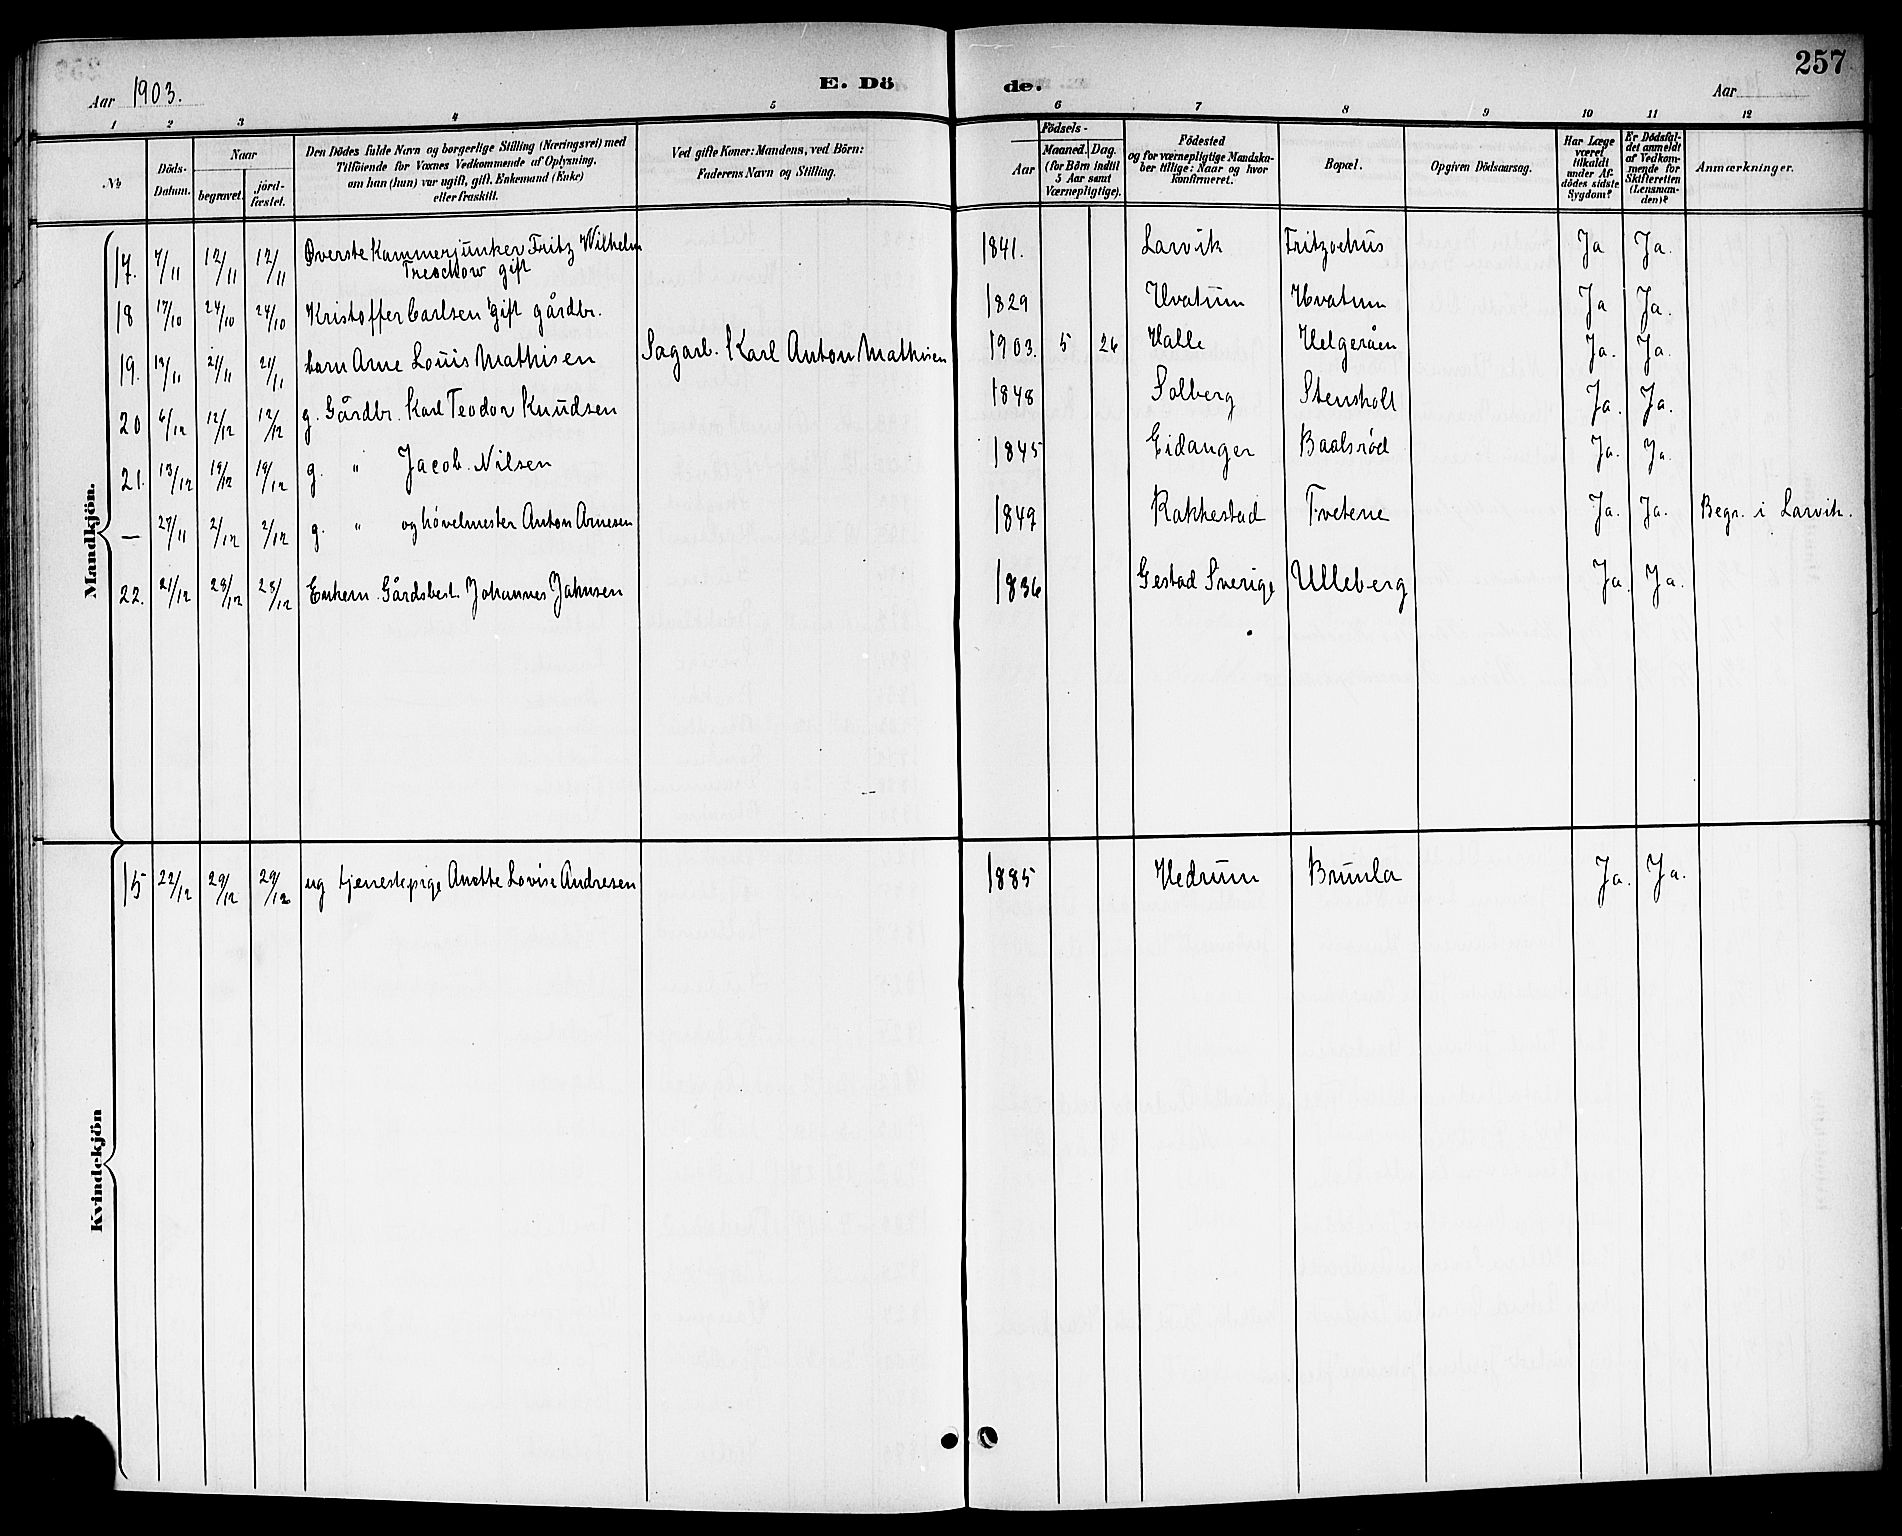 257
Aar 1903.
E. Dö de.
Aar
1 2 3 4 5 6 7 8 9 10 11 12
№
Döds-Datum.
Naar
begravet.
jörd-fæstet.
Den Dödes fulde Navn og borgerlige Stilling (Næringsvei) med
Tilföiende for Voxnes Vedkommende af Oplysning,
om han (hun) var ugift, gift, Enkemand (Enke)
eller fraskilt.
Ved gifte Koner: Mandens, ved Börn:
Faderens Navn og Stilling.
Födsels-
Aar
Maaned. Dag.
(for Börn indtil
5 Aar samt
Værnepligtige).
Födested
og for værnepligtige Mandska-
ber tillige: Naar og hvor
konfirmeret.
Bopæl.
Opgiven Dödsaarsag.
Har Læge
været
tilkaldt
under Af-
dödes sidste
Sygdom?
Er Dödsfal-
det anmeldt
af Vedkom-
mende for
Skifteretten
(Lensman-
den)?
Anmærkninger.
Mandkjön.
17. 7/11 12/11 12/11 Øverste Kammerjunker Fritz Wilhelm 1841. Larvik Fritzøehus Ja Ja.
Treschow gift
18 17/10 24/10 24/10 Kristoffer Carlsen gift gårdbr. 1829 Hvatum Hvatum Ja Ja.
19. 13/11 21/11 21/11 barn Arne Louis Mathisen Sagarb. Karl Anton Mathisen 1903. 5 26 Halle Helgeråen Ja. Ja.
20 6/12 12/12 12/12 g. Gårdbr. Karl Teodor Knudsen 1848 Solberg Stensholt Ja. Ja.
21. 13/12 19/12 19/12 g. " Jacob Nilsen 1845 Eidanger Baalsrød Ja. Ja.
— 27/11 2/12 2/12 g. " og høvelmester Anton Arnesen 1849 Rakkestad Tvetene Ja. Ja. Begr. i Larvik.
22. 21/12 28/12 28/12 Enkem. Gårdsbest. Johannes Jahnsen 1836 Gestad Sverige Ulleberg Ja. Ja.
Kvindekjön
15 22/12 29/12 29/12 ug tjenestepige Anette Lovise Andresen 1885 Hedrum Brunla Ja. Ja.